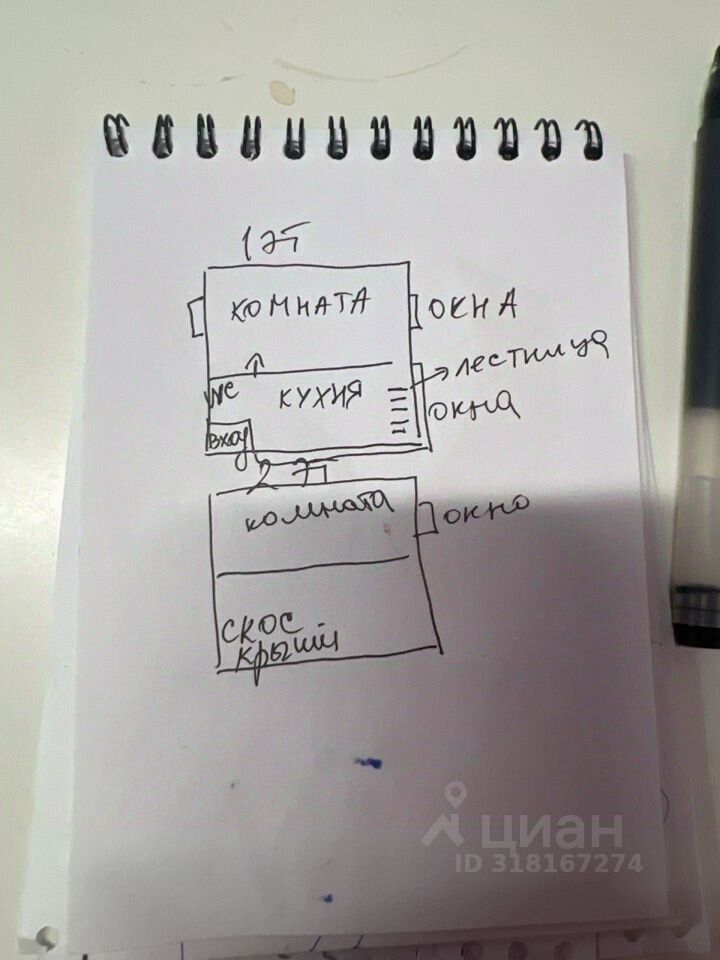 1 эт
КОМНАТА
ОКНА
лестница
WC
КУХНЯ
ОКНА
вход
2 эт
комната
окно
СКОС
крыши
циан
ID 318167274